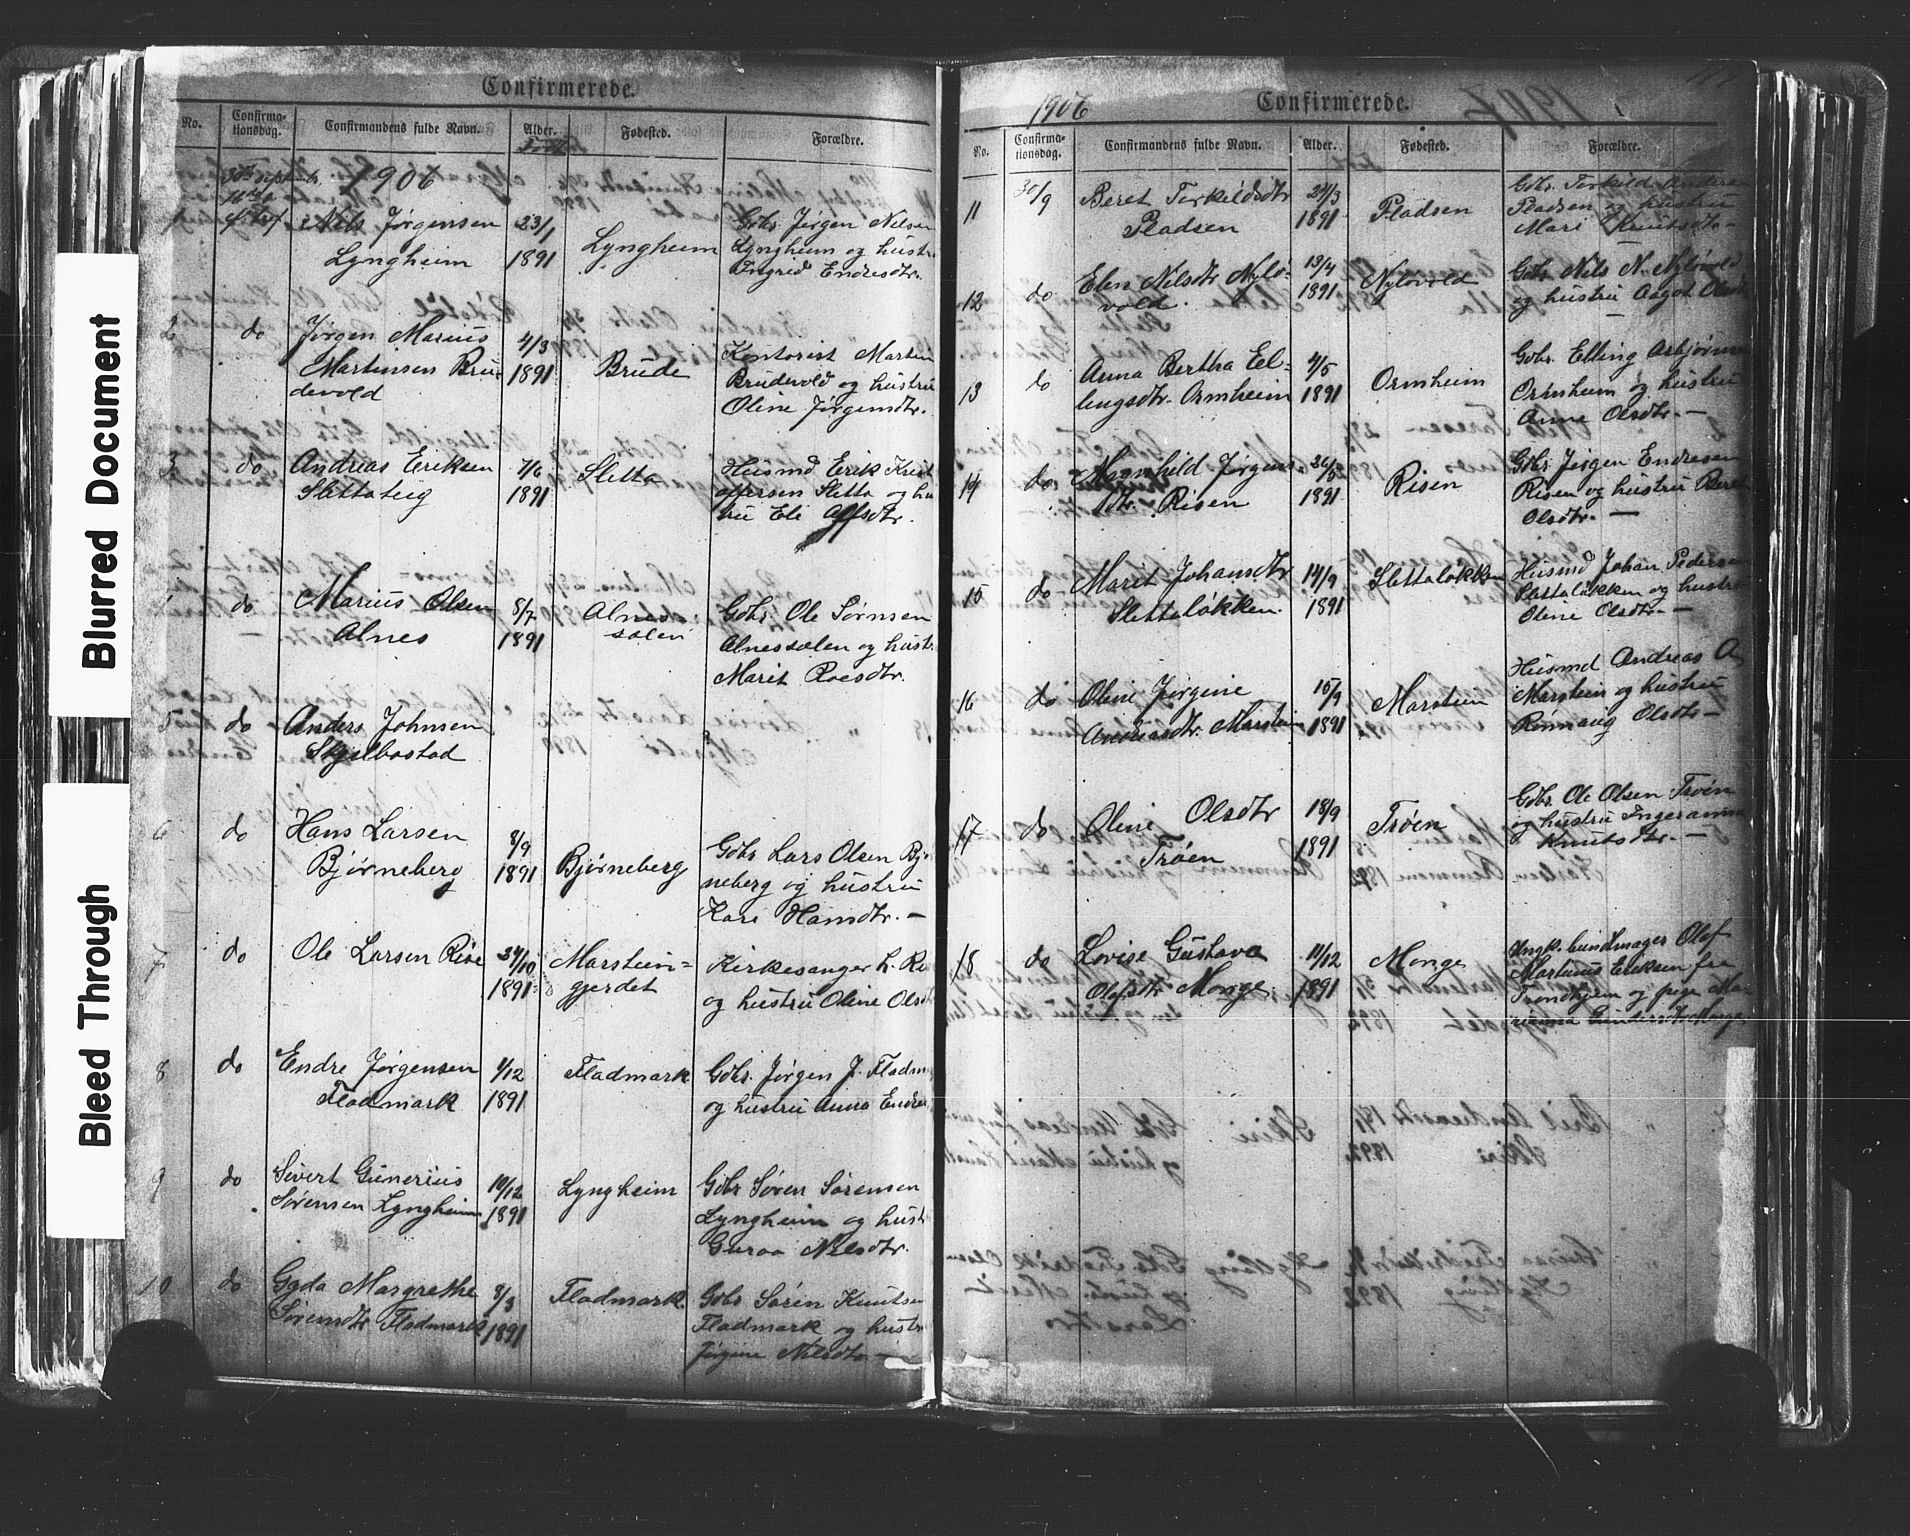 Blurred Document
Bleed Through
Confirmerede.
No.
Confirma-
tionsdag.
Confirmandens fulde Navn.
Alder.
Fødested.
Forældre.
1906
Nils Jørgensen
Lyngheim
23/1
1891
Lyngheim
Gbr. Jørgen Nilsen
Lyngheim og hustr
Ingrid Endresdtr.
2
do
Jørgen Marius
Martinsen Bru
devold
4/3
1891
Brude
Kontorist Martin
Brudevold og hustru
Oline Jørgensdtr.
3
do
Andreas Eriksen
Slettateig
7/6
1891
Sletta
Husmd Erik Krist
offersen Sletta og hu
tru Eli
do
Marius Olsen
Alnes
8/7
1891
Alnes
sølen
Gdbr. Ole Sørnsen
Alnessølen og hust
Marit Roesdtr.
5
do
Anders Johnsen
Skjelbostad
6
do
Hans Larsen
Bjørneberg
8/9
1891
Bjørneberg
Gdbr Lars Olsen Bjø
neberg og hustru
Kari Hansdtr. —
7
do
Ole Larsen Rise
24/10
1891
Marstein=
gjerdet
Kirkesanger L. Ri
og hustru Oline Olsd
8
do
Endre Jørgensen
Fladmark
1/12
1891
Fladmark
Gdbr. Jørgen J. Fladm
og hustru Anna Endre
9
do
Sivert Gunerius
Sørensen Lyngheim
10/12
1891
Lyngheim
Gdbr Søren Sørensen
Lyngheim og hust
Guroa Nilsdtr.
10
do
Gyda Margrethe
Sørensdtr Fladmark
8/3
1891
Fladmark
Gdbr Søren Knutsen
Fladmark og hustr
Jørgine Nilsdtr —
1906
Confirmerede.
No.
Confirma-
tionsdag.
Confirmandens fulde Navn.
Alder.
Fødested.
Forældre.
11
30/9
Beret Terkildsdtr
Pladsen
24/3
1891
Pladsen
Gdbr. Terkild Anders
Pladsen og hustru
Mari Knutsdtr —
12
do
Elen Nilsdtr Nylø-
vold.
13/4
1891
Nyløvold
Gdbr. Nils N. Nyløvold
og hustru Aagot
13
do
Anna Bertha El-
lingsdtr. Ormheim
4/5
1891
Ormheim
Gdbr. Elling Asbjørns
Ormheim og hustru
Anne Olsdtr. —
14
do
Magnhild Jørgens-
dtr. Risen
26/8
1891
Risen
Gdbr. Jørgen Endresen
Risen og hustru Beret
Olsdtr. —
15
do
Marit Johansdtr
Slettaløkken
14/9
1891
Slettaløkken
Husmd Johan Pedersen
Slettaløkken og hustr
Oline Olsdtr —
16
do
Oline Jørgine
Andreasdtr. Marstein
15/9
1891
Marstein
Husmd Andreas A
Marstein og hustru
Rinnaug Olsdtr —
17
do
Oline Olsdtr
Trøen
18/9
1891
Trøen
Gdbr. Ole Olsen Trøen
og hustru Ingeranna
Knutsdtr. —
18
do
Lovise Gustava
Olafsdtr Monge
11/12
1891
Monge
Ungk. buntmager Olaf
Martinus Eriksen fra
Trondhjem og pige Ma-
rianna Gundersdtr Monge